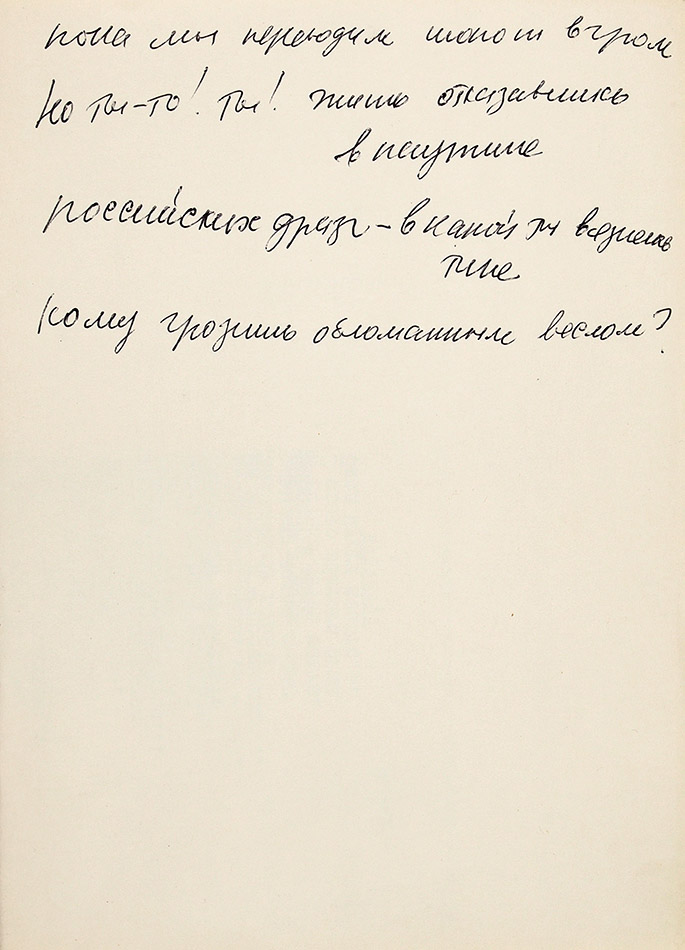 пока мы переводим шопот в гром
Но ты-то! Ты! Жить отказавшись
в паутине
российских дрязг – в какой ты вязнешь
тине
Кому грозишь обломанным веслом?